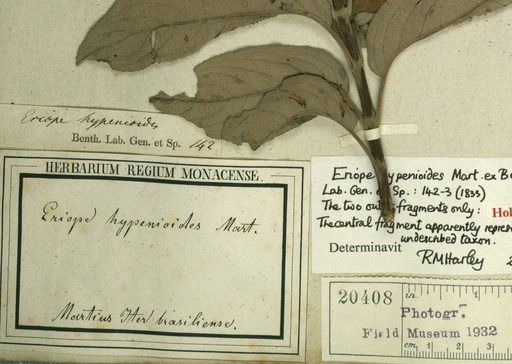 Eriope hypenioides
Benth. Lab. Gen. et Sp. 142
HERBARIUM REGIUM MONACENSE.
Eriope hypenioides Mart.
Martius Iter brasiliense.
Eriope hypenioides Mart. ex Be
Lab. Gen. et Sp.: 142-3 (1833)
The two outer fragments only: Hol
The central fragment apparently repres
undescribed taxon.
Determinavit RMHarley 2
20408 in. 1 4
Photogr.
Field Museum 1932
cm. 1 2 3 9